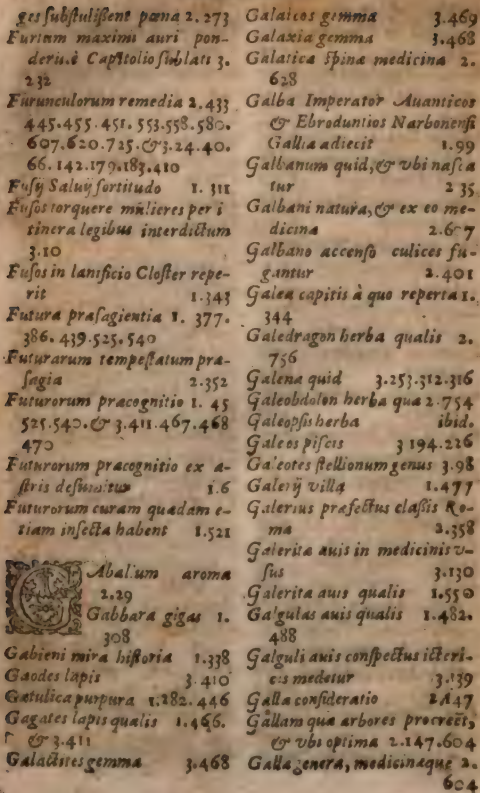 ges substulissent pœna 2. 273
Furtum maximi auri pon-
deris.è Capitolio sublati 3.
232
Furunculorum remedia 2.433
445.455.451.553.558.580.
607.620.725.&3.24.40.
66.142.179.183.410
Fusÿ Saluÿ fortitudo 1. 311
Fusos torquere mulieres per i
tinera legibus interdictum
3.10
Fusos in lanificio Closter repe-
rit 1.343
Futura præsagientia 1. 377.
386. 439.525.540
Futurarum tempestatum præ-
sagia 2.352
Futurorum præcognitio 1. 45
525.540.& 3.411.467.468
470
Futurorum præcognitio ex a-
stris 1.6
Futurorum curam quædam e-
tiam insecta habent 1.521
GAbalium aroma
2.29
Gabbara gigas 1.
308
Gabieni mira historia 1.338
Gaodes lapis 3.410
Gætulica purpura 1.282.446
Gagates lapis qualis 1.466.
& 3.411
Galactites gemma 3.468
Galaicos gemma 3.469
Galaxia gemma 3.468
Galatica spina medicina 2.
628
Galba Imperator Auanticos
& Ebroduntios Narbonensi
Galliæ adiecit 1.99
Galbanum quid,& vbi nasca
tur 2 35
Galbani natura,& ex eo me-
dicina
Galbano accenso culices fu-
gantur 2.401
Galea capitis à quo reperta 1.
344
Galedragon herba qualis 2.
756
Galena quid 3.253.312.316
Galeobdolon herba quæ 2.754
Galeopsis herba ibid.
Galeos piscis 3 194.226
Galeotes stellionum genus 3.98
Galerÿ villa 1.477
Galerius præfectus classis Ro-
mæ 2.358
Galerita auis in medicinis v-
sus 3.130
Galerita auis qualis 1.550
Galgulas auis qualis 1.482.
488
Galguli auis conspectus icteri-
cis medetur 3.139
Gallæ consideratio 2.147
Gallam quæ arbores procreēt,
& vbi optima 2.147.604
Gallæ genera, medicinæque 2.
604